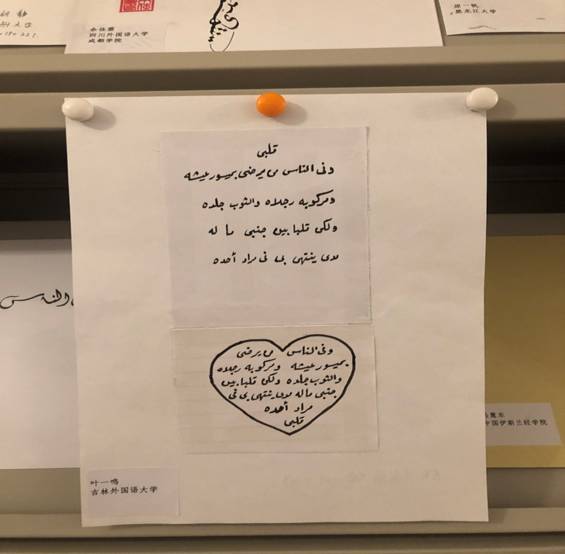 余佳蕙
四川外国语大学
成都学院
黑龙江大学
قلبي
وفى الناس من يرضى بميسور عيشه
ومركوبه رجلاه والثوب جلده
ولكن قلبا بين جنبي ما له
مدى ينتهي بي في مراد أحده
وفى الناس من يرضى
بميسور عيشه ومركوبه رجلاه
والثوب جلده ولكن قلبا بين
جنبي ماله مدى ينتهى بى فى
مراد أحده
قلبي
叶一鸣
吉林外国语大学
中国伊斯兰经学院